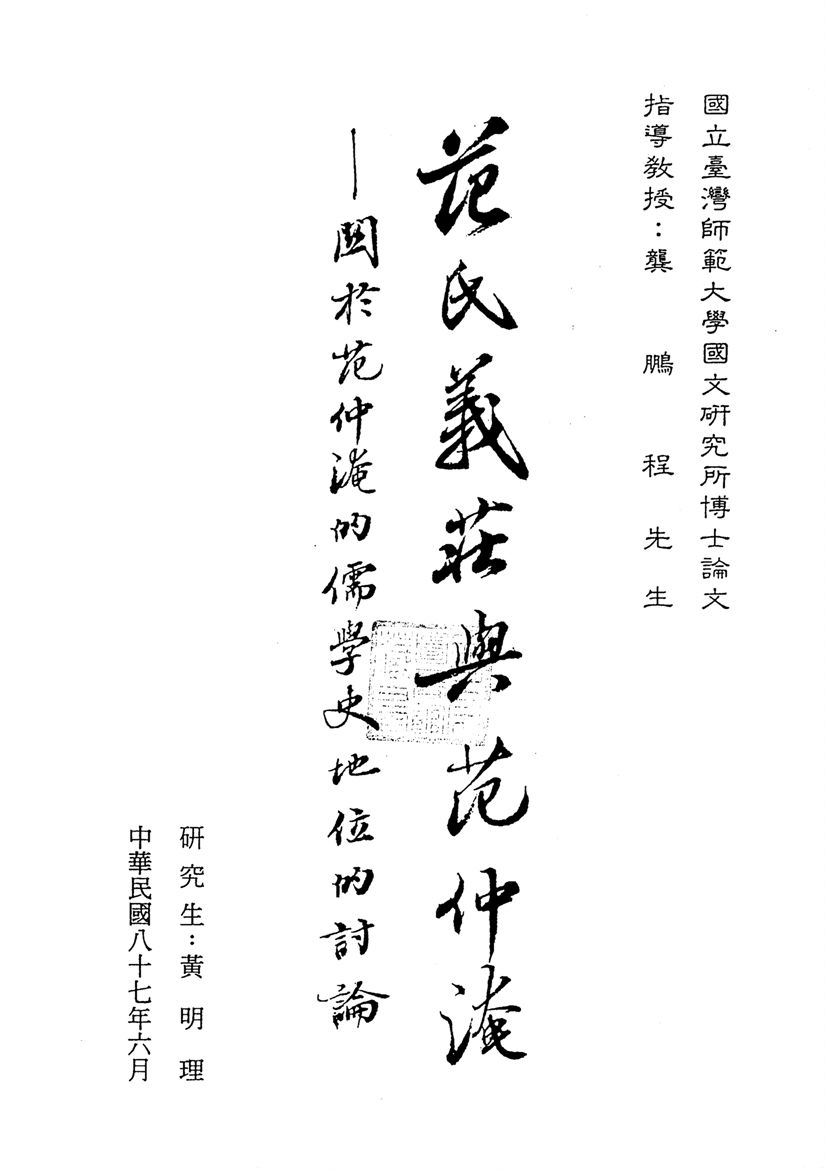 國立臺灣師範大學國文研究所博士論文
指導教授：龔鵬程先生
范氏義莊與范仲淹
—關於范仲淹的儒學史地位的討論
研究生：黃明理
中華民國八十七年六月